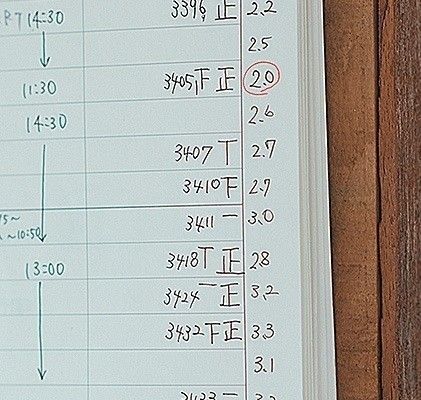 14:30 3396 正 2.2
2.5
11:30 3405 下正 2.0
14:30 2.6
3407 丅 2.7
3410 下 2.7
~ 3411 一 3.0
~10:50
13:00 3418 丅正 2.8
3424 一正 3.2
3432 下正 3.3
3.1